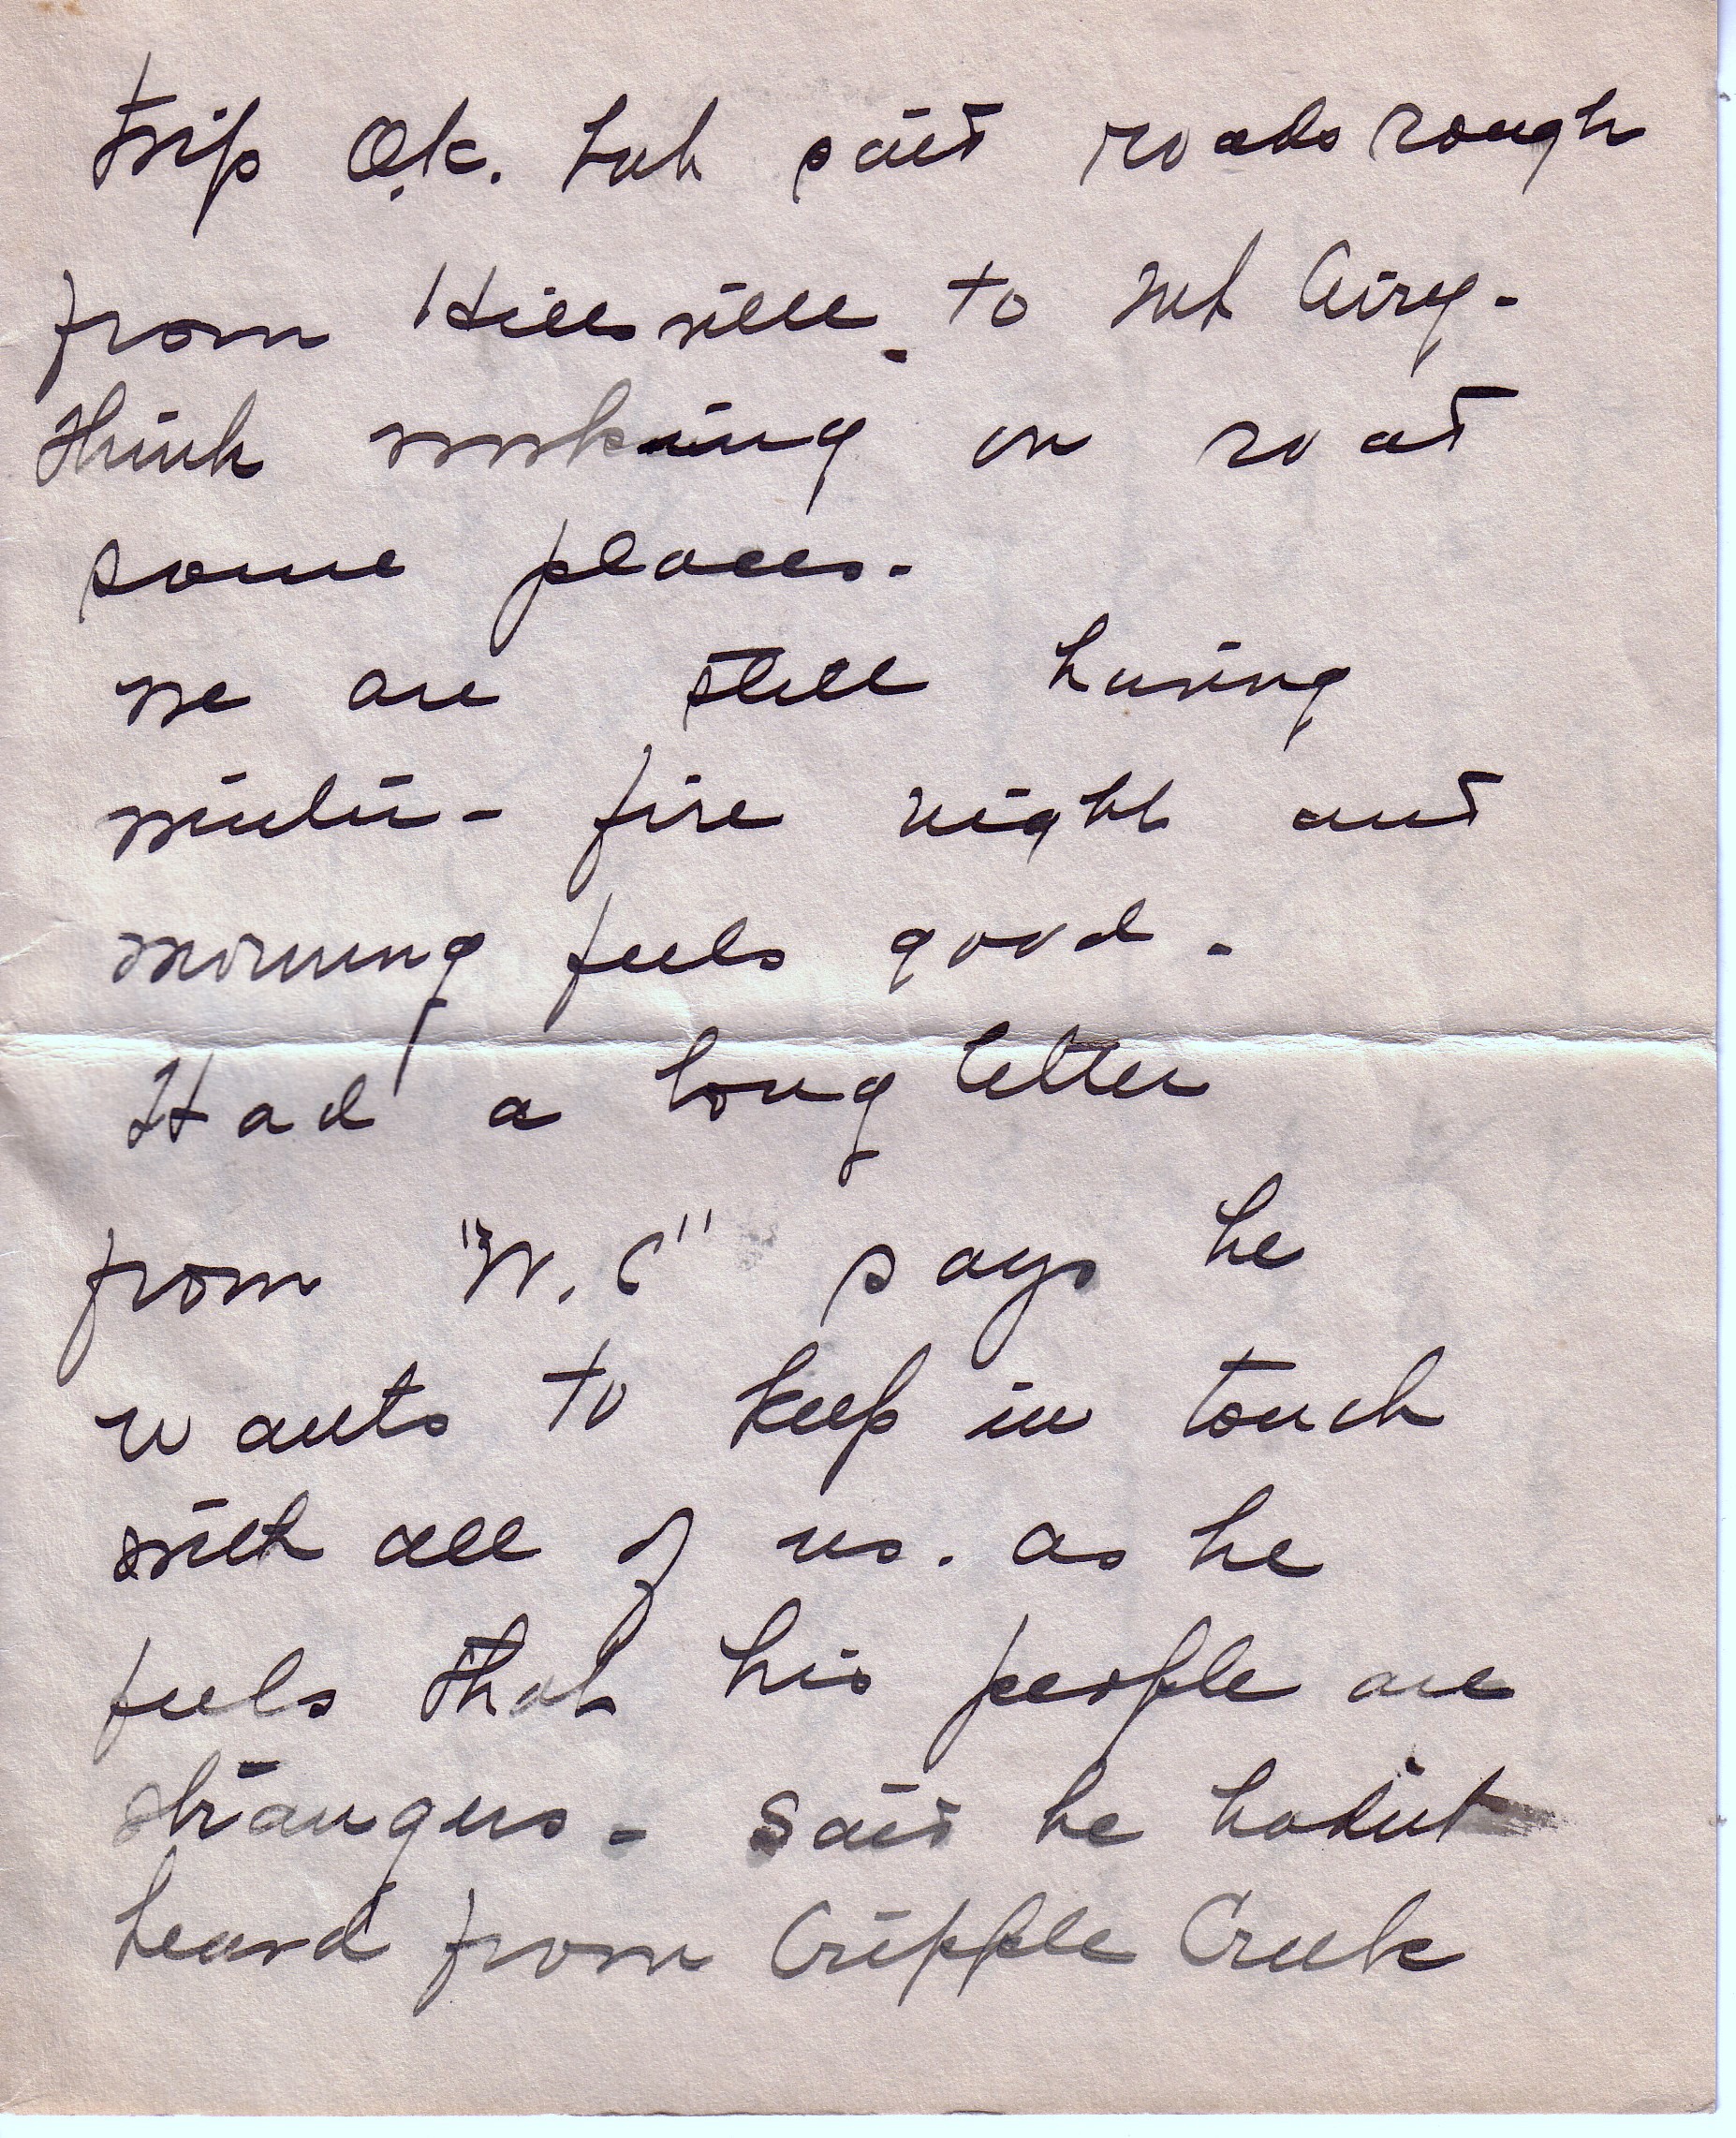 trip O.k. but said roads rough
from Hillsville to Mt Airy-
think working on road
some places.
we are still having
winter- fire night and
morning feels good.
Had a long letter
from "W.C" says he
wants to keep in touch
with all of us. as he
feels that his people are
strangers- Said he hadn't
heard from Cripple Creek